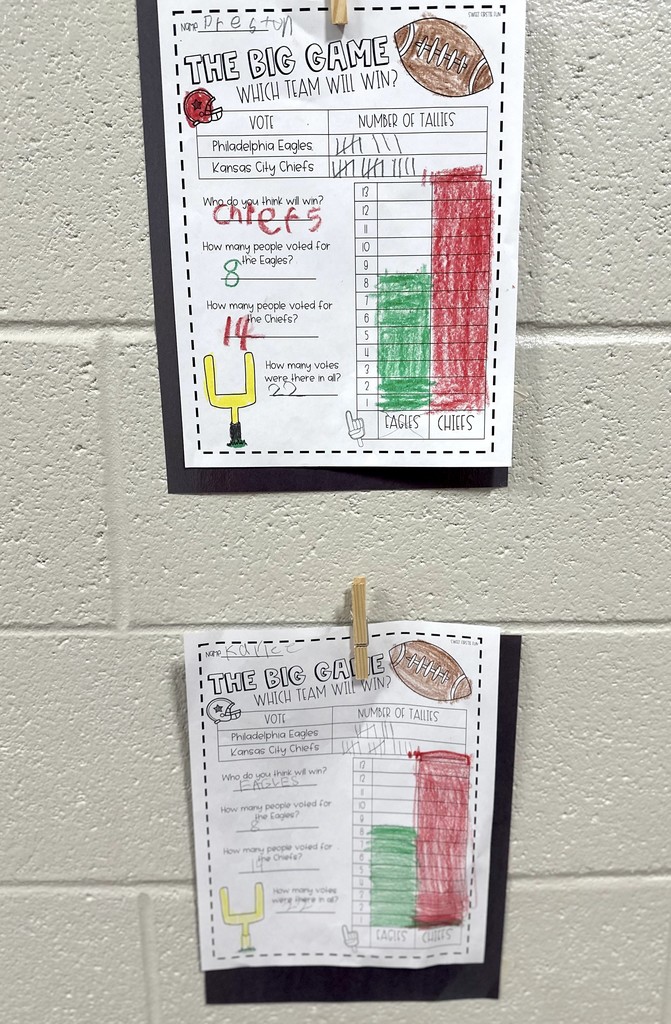 NAME Preston
SWEET FIRSTIE FUN
THE BIG GAME
WHICH TEAM WILL WIN?
VOTE NUMBER OF TALLIES
Philadelphia Eagles
Kansas City Chiefs
Who do you think will win?
Chiefs
How many people voted for
the Eagles?
8
How many people voted for
the Chiefs?
14
How many votes
were there in all?
22
13
12
11
10
9
8
7
6
5
4
3
2
1
EAGLES CHIEFS
NAME
SWEET FIRSTIE FUN
THE BIG GAME
WHICH TEAM WILL WIN?
VOTE NUMBER OF TALLIES
Philadelphia Eagles
Kansas City Chiefs
Who do you think will win?
EAGLES
How many people voted for
the Eagles?
8
How many people voted for
the Chiefs?
14
How many votes
were there in all?
22
13
12
11
10
9
8
EAGLES CHIEFS